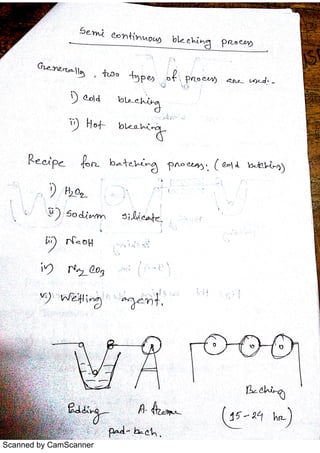 Semi continuous bleching process
Generally, two types of process are used:-
i) Cold bleching
ii) Hot bleching
Recipe for batching process: (cold batching)
i) H2O2
ii) Sodium silicate
iii) NaOH
iv) Na2 CO3
v) Wetting agent.
Padding
A. frame
Baching
(15-24 hr)
pad-bach.
Scanned by CamScanner